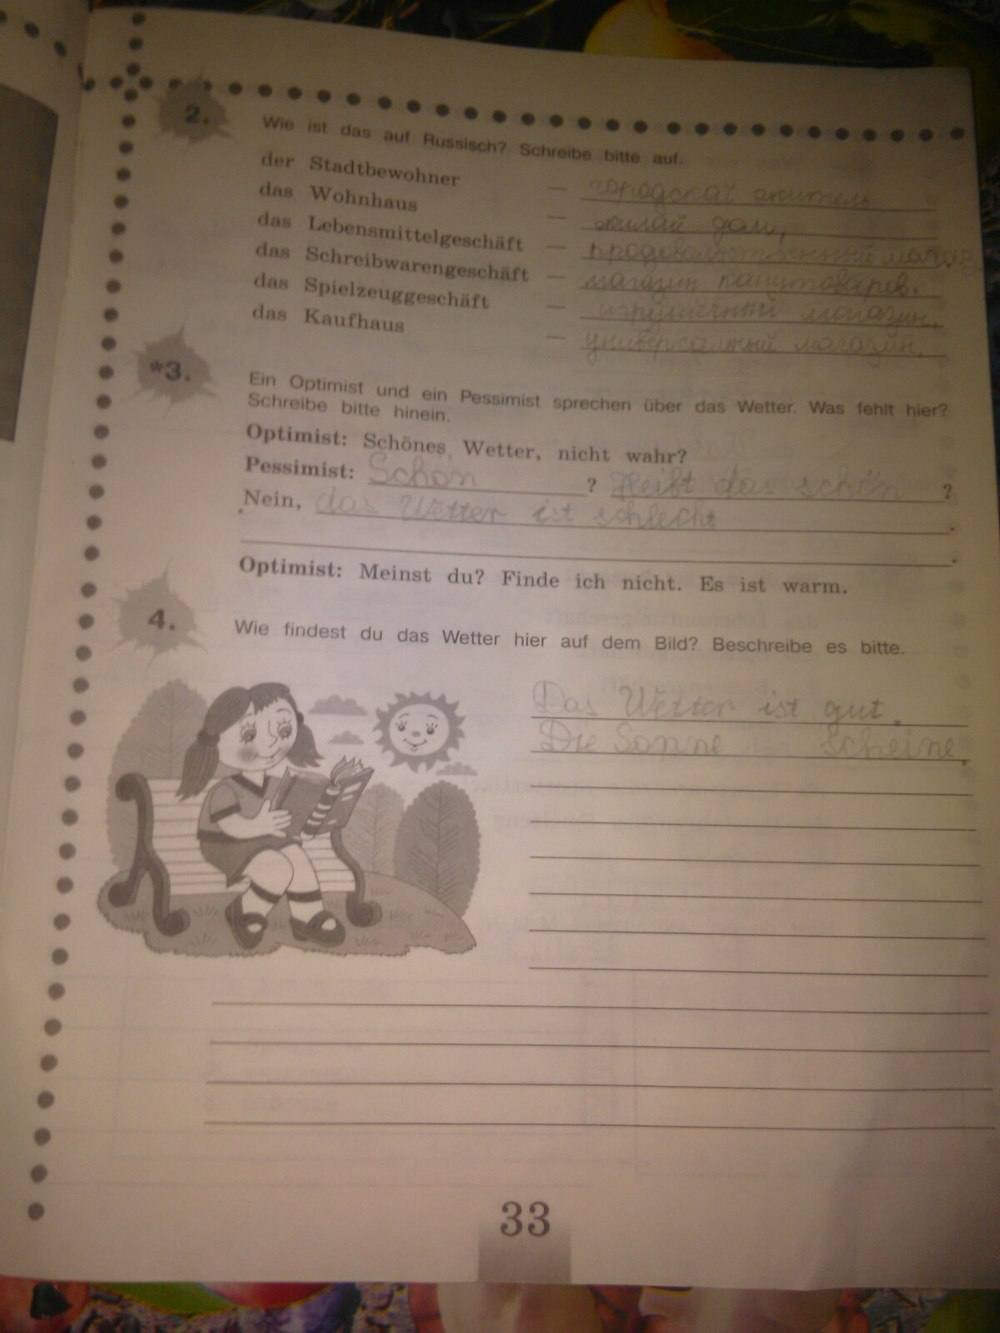 2. Wie ist das auf Russisch? Schreibe bitte auf.
der Stadtbewohner — городской житель
das Wohnhaus — жилай дом,
das Lebensmittelgeschäft — продовольственный магаз
das Schreibwarengeschäft — магазин канцтоваров.
das Spielzeuggeschäft — игрушечный магазин.
das Kaufhaus — универсальный магазин.
*3. Ein Optimist und ein Pessimist sprechen über das Wetter. Was fehlt hier?
Schreibe bitte hinein.
Optimist: Schönes Wetter, nicht wahr?
Pessimist: Schon ? Heißt das schön ?
Nein, das Wetter ist schlecht .
.
Optimist: Meinst du? Finde ich nicht. Es ist warm.
4. Wie findest du das Wetter hier auf dem Bild? Beschreibe es bitte.
Das Wetter ist gut.
Die Sonne scheine.
33